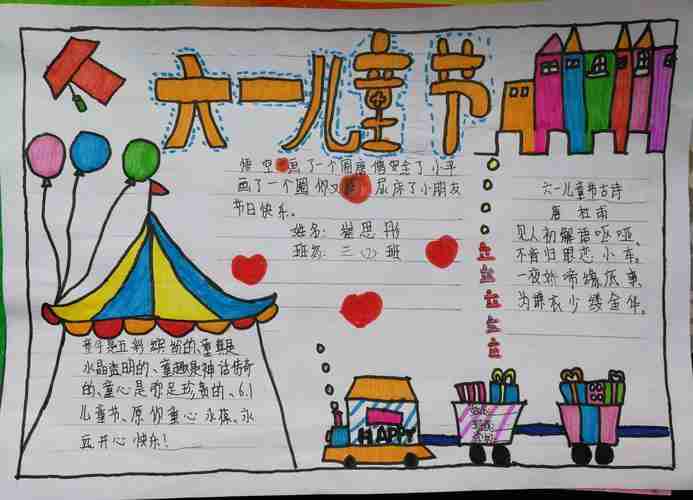 六一儿童节
悟空画了一个圈唐僧安全了小平
画了一个圈 你又 尿床了小朋友
节日快乐。
姓名: 思彤
班名: 三(2)班
六一儿童节古诗
唐 杜甫
见人初解语呕哑,
不肯归眠恋小车。
一夜娇啼缘底事
为嫌衣少缕金华。
童年是五彩缤纷的、童真是
水晶透明的、童趣是神话传奇
的、童心是弥足珍贵的、6.1
儿童节、愿你童心永葆、永
远开心快乐!
HAPPY